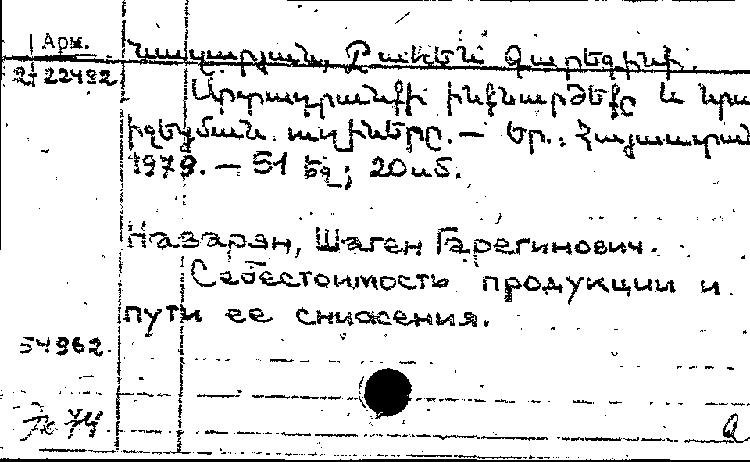 Арм.
Նազարյան, Գարեգինի.
2-22482
Արտադրանքի ինքնարժեքը և նրա
իջեցման ուղիները. — Եր.: Հայաստան
1979. — 51 էջ; 20 սմ.
Назарян, Шаген Гарегинович.
Себестоимость продукции и
пути ее снижения.
54962
74